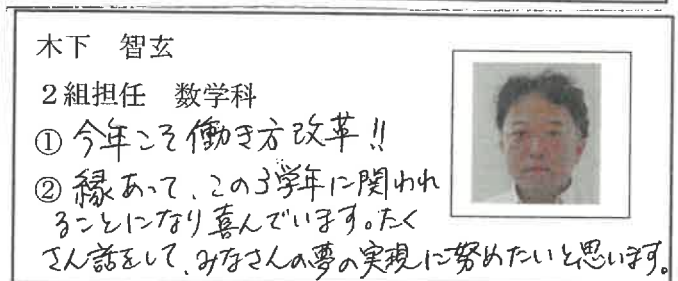 木下 智玄
2組担任 数学科
① 今年こそ働き方改革!!
② 縁あって、この3学年に関われ
ることになり喜んでいます。たく
さん話をして、みなさんの夢の実現に努めたいと思います。